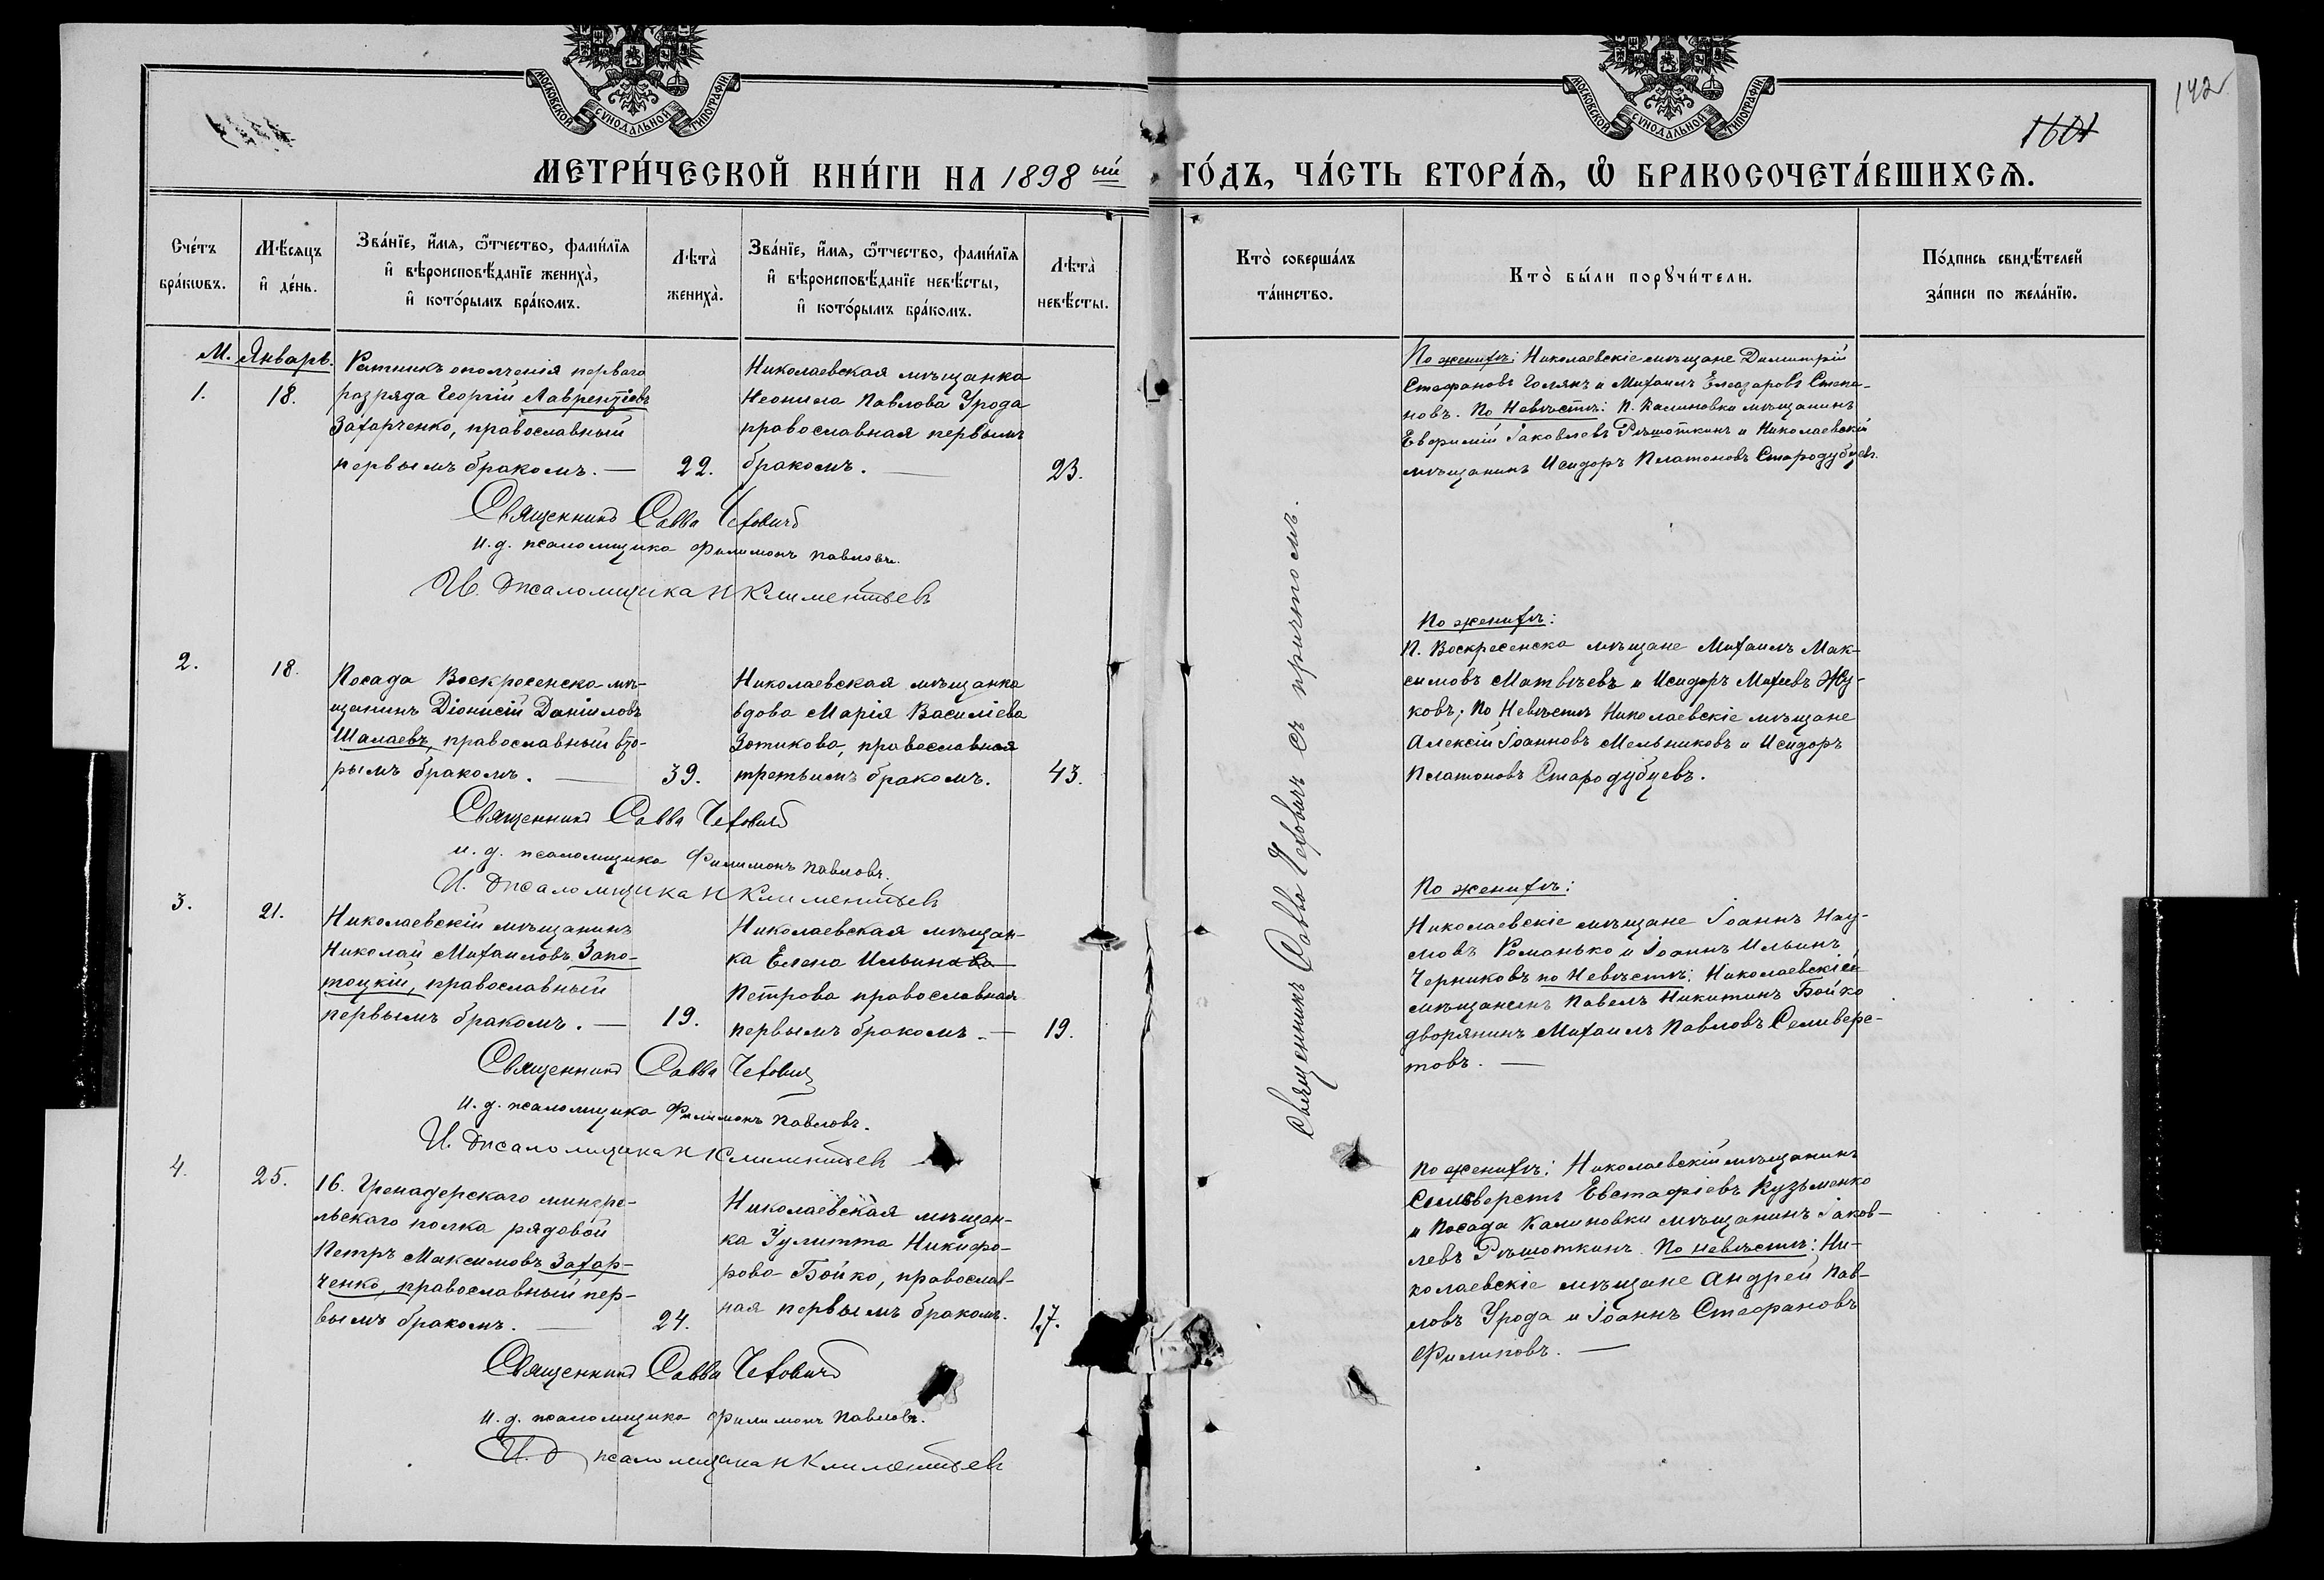 МОСКОВСКОЙ СѴНОДАЛЬНОЙ ТИПОГРАФІИ
МОСКОВСКОЙ СѴНОДАЛЬНОЙ ТИПОГРАФІИ
142
1601
МЕТРИ́ЧЕСКОЙ КНИ́ГИ НА 1898 ый ГО́ДЪ, ЧА́СТЬ ВТОРА́Я, Ѡ҆ БРАКОСОЧЕТА́ВШИХСЯ.
Сче́тъ
бра́кѡвъ.
Мѣ́сяцъ
и҆ де́нь.
Зва́нїе, и҆́мя, ѻ҆́тчество, фами́лїя
и҆ вѣроисповѣ́данїе жениха̀,
и҆ кото́рымъ бра́комъ.
Лѣта̀
жениха̀.
Зва́нїе, и҆́мя, ѻ҆́тчество, фами́лїя
и҆ вѣроисповѣ́данїе невѣ́сты,
и҆ кото́рымъ бра́комъ.
Лѣта̀
невѣ́сты.
Кто̀ соверша́лъ
та́инство.
Кто̀ бы́ли порꙋчи́тели.
По́дпись свидѣ́телей
за́писи по жела́нїю.
М. Январь.
1.
18.
Ратникъ ополченія перваго
разряда Георгій Лаврентіевъ
Захарченко, православный
первымъ бракомъ. —
22.
Николаевская мѣщанка
Неонила Павлова Урода
православная первымъ
бракомъ. —
23.
По женихѣ: Николаевскіе мѣщане Димитрій
Стефановъ Голякъ и Михаилъ Елеазаровъ Степа-
новъ. По Невѣстѣ: П. Калиновки мѣщанинъ
Евфимій Іаковлевъ Рѣшоткинъ и Николаевскій
мѣщанинъ Исидоръ Платоновъ Стародубцевъ.
Священникъ Савва Чеховичъ
И. д. псаломщика Филимонъ Павловъ.
И. д. псаломщика Н Климентьевъ
2.
18.
Посада Воскресенска мѣ-
щанинъ Діонисій Даніиловъ
Шалаевъ, православный вто-
рымъ бракомъ. —
39.
Николаевская мѣщанка
вдова Марія Василіева
Зотикова, православная
третьимъ бракомъ.
43.
По женихѣ:
П. Воскресенска мѣщане Михаилъ Мак-
симовъ Матвѣевъ и Исидоръ Михеевъ Жу-
ковъ; По Невѣстѣ Николаевскіе мѣщане
Алексій Іоанновъ Мельниковъ и Исидоръ
Платоновъ Стародубцевъ.
Священникъ Савва Чеховичъ
и. д. псаломщика Филимонъ Павловъ.
И. д псаломщика Н Климентьевъ
3.
21.
Николаевскій мѣщанинъ
Николай Михаиловъ Запо-
тоцкій, православный
первымъ бракомъ. —
19.
Николаевская мѣщан-
ка Елена Ильинова
Петрова православная
первымъ бракомъ. —
19.
По женихѣ:
Николаевскіе мѣщане Іоаннъ Нау-
мовъ Романько и Іоаннъ Ильинъ
Черниковъ по Невѣстѣ: Николаевскій
мѣщанинъ Павелъ Никитинъ Бойко
дворянинъ Михаилъ Павловъ Селиверс-
товъ. —
Священникъ Савва Чеховичъ
И. д. псаломщика Филимонъ Павловъ.
И. д псаломщика Н Климентьевъ
4.
25.
16. Гренадерскаго мингре-
льскаго полка рядовой
Петръ Максимовъ Захар-
ченко, православный пер-
вымъ бракомъ. —
24.
Николаевская мѣщан-
ка Іулитта Никифо-
рова Бойко, православ-
ная первымъ бракомъ.
17.
По женихѣ: Николаевскій мѣщанинъ
Сильверстъ Евстафіевъ Кузьменко
и Посада Калиновки мѣщанинъ Іаков-
левъ Рѣшоткинъ. По невѣстѣ: Ни-
колаевскіе мѣщане Андрей Пав-
ловъ Урода и Іоаннъ Стефановъ
Филиповъ. —
Священникъ Савва Чеховичъ
И. д. псаломщика Филимонъ Павловъ.
И. д псаломщика Н Климентьевъ
Священникъ Савва Чеховичъ съ причтомъ.